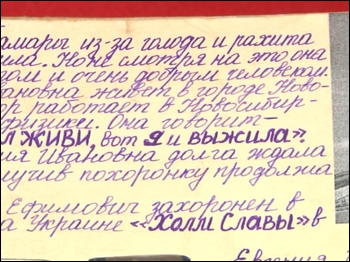 амары из-за голода и рахита
ила. Но не смотря на это она
дом и очень добрым человеком.
вановна живёт в городе Ново-
ор работает в Новосибир-
физике. Она говорит-
Л ЖИВИ, вот Я и выжила".
ия Ивановна долга ждала
лучив похоронку продолжа
Ефимович захоронен в
а Украине "Холм Славы" в
Евгения